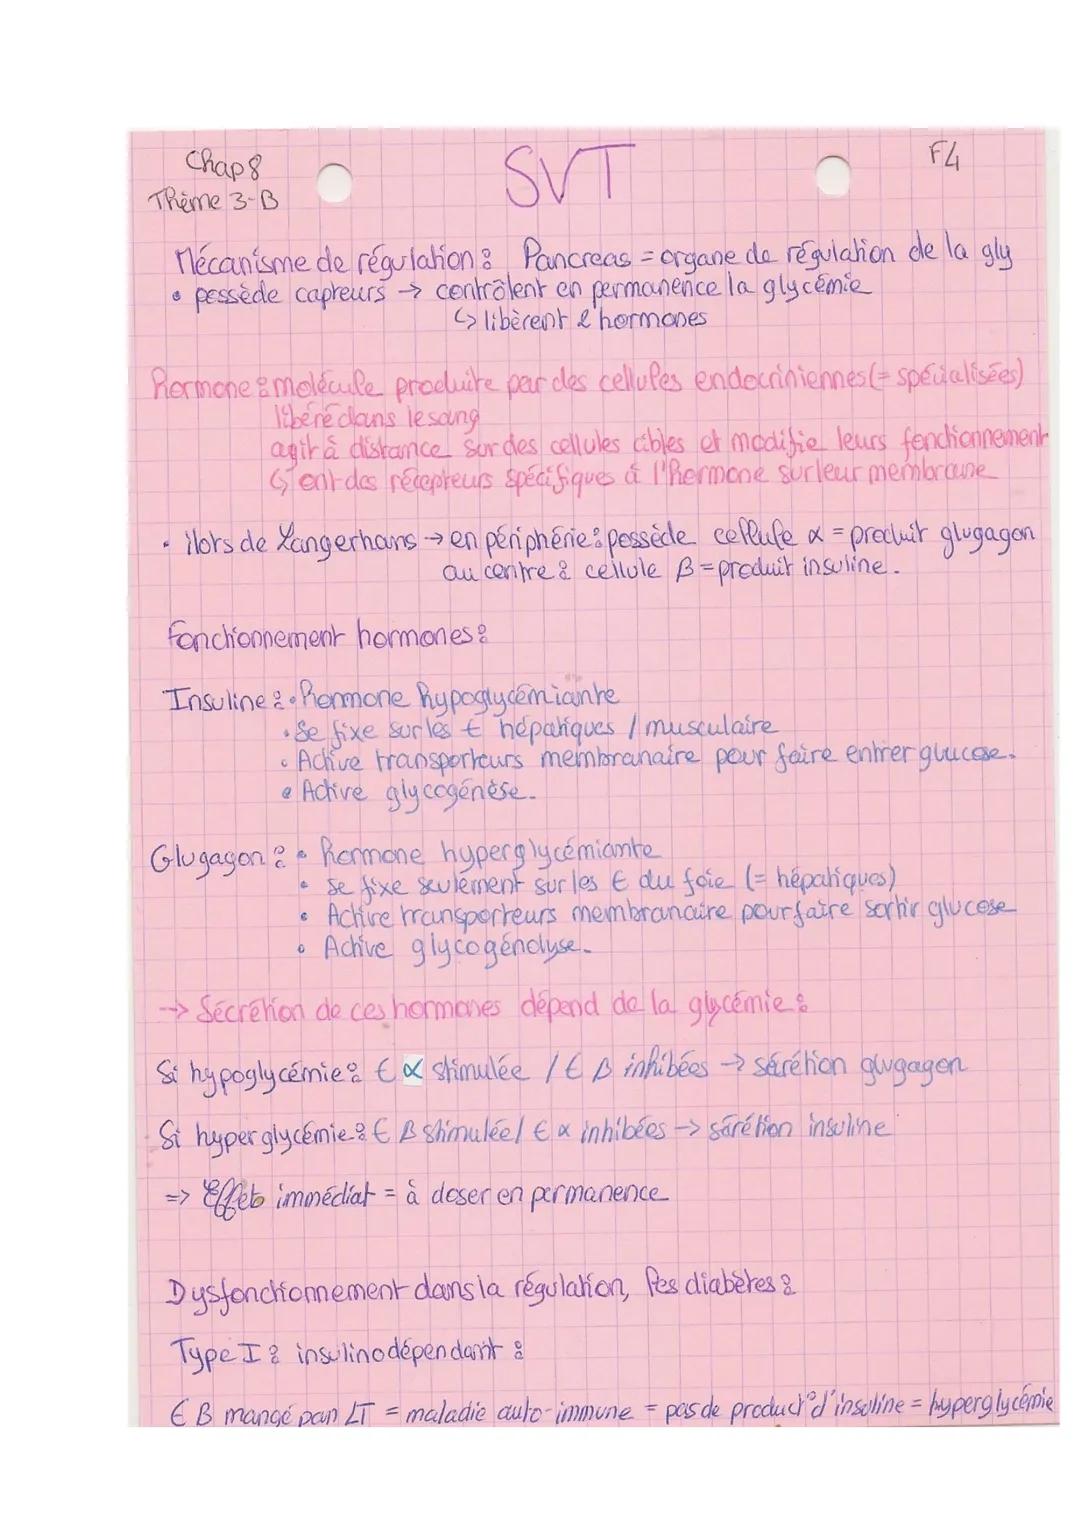 Chap 8
SVT
F4
Thème 3-B
Mécanisme de régulation : Pancreas = organe de régulation de la gly
• possède capteurs → contrôlent en permanence la glycémie
↳ libèrent 2 hormones
Hormone : molécule produite par des cellules endocriniennes (= spécialisées)
libéré dans le sang
agit à distance sur des cellules cibles et modifie leurs fonctionnement
↳ ont des récepteurs spécifiques à l'hormone sur leur membrane
• ilots de Langerhans → en périphérie : possède cellule α = produit glugagon
au centre : cellule β = produit insuline.
Fonctionnement hormones :
Insuline : • Hormone hypoglycémiante
• Se fixe sur les € hépatiques / musculaire
• Active transporteurs membranaire pour faire entrer glucose.
• Active glycogénèse.
Glugagon : • Hormone hyperglycémiante
• se fixe seulement sur les € du foie (= hépatiques)
• Active transporteurs membranaire pour faire sortir glucose
• Active glycogénolyse.
→ Sécrétion de ces hormones dépend de la glycémie :
Si hypoglycémie : € α stimulée / € β inhibées → sécrétion glugagon
Si hyperglycémie : € β stimulée / € α inhibées → sécrétion insuline
=> Effet immédiat = à doser en permanence
Dysfonctionnement dans la régulation, les diabètes :
Type I : insulinodépendant :
€ β mangé par LT = maladie auto-immune = pas de product° d'insuline = hyperglycémie